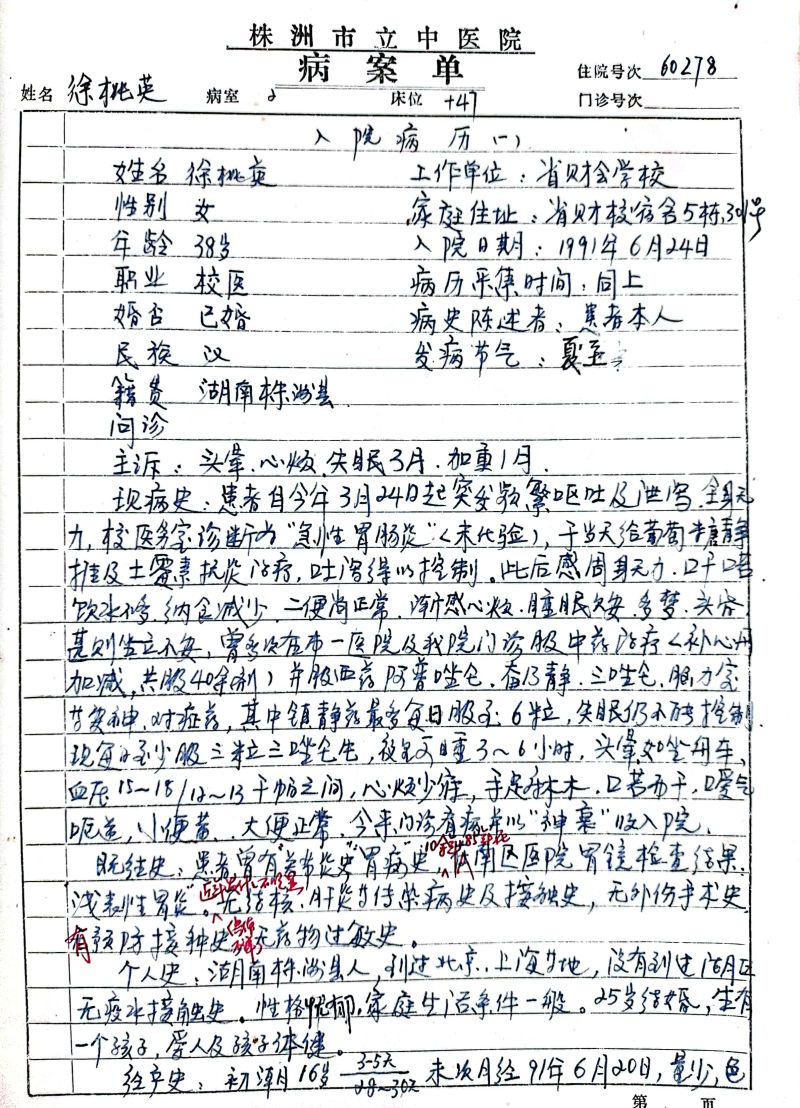 株洲市立中医院
病案单
住院号次 60278
姓名 徐桃英 病室 2 床位 +47 门诊号次
入院病历(一)
姓名 徐桃英 工作单位:省财会学校
性别 女 家庭住址:省财校宿舍5栋301号
年龄 38岁 入院日期:1991年6月24日
职业 校医 病历采集时间:同上
婚否 已婚 病史陈述者:患者本人
民族 汉 发病节气:夏至
籍贯 湖南株洲县
问诊
主诉:头晕、心烦、失眠3月、加重1月.
现病史:患者自今年3月24日起突发频繁呕吐及泄泻、全身无
力,校医务室诊断为“急性胃肠炎”(未化验),于当天给葡萄糖静
推及土霉素抗炎治疗,吐泻得以控制。此后感周身无力、口干口苦
饮水不多,纳食减少、二便尚正常、渐感心烦、睡眠欠安、多梦、头晕、
甚则坐立不安,曾多次在市一医院及我院门诊服中药治疗(补心丹
加减,共服40余剂)并服西药阿普唑仑、奋乃静、三唑仑、脑力宝
等安神、对症药,其中镇静药最多每日服至6粒,失眠仍不能控制
现每日至少服三粒三唑仑片,夜里可睡3~6小时,头晕如坐舟车,
血压15~18/12~13千帕之间,心烦少寐,手足麻木,口苦而干,口嗳气
呃逆,小便黄、大便正常,今来门诊看病者以“神衰”收入院。
既往史:患者曾有“胃病”史,南区医院胃镜检查结果
浅表性胃炎”。无结核、肝炎等传染病史及接触史,无外伤手术史,
有预防接种史 无药物过敏史。
个人史:湖南株洲县人,到过北京、上海等地,没有到过湖区
无疫水接触史。性格忧郁,家庭生活条件一般。25岁结婚,生有
一个孩子,爱人及孩子体健。
经产史:初潮月16岁 3-5天/28~30天 末次月经91年6月20日,量少,色
第 页